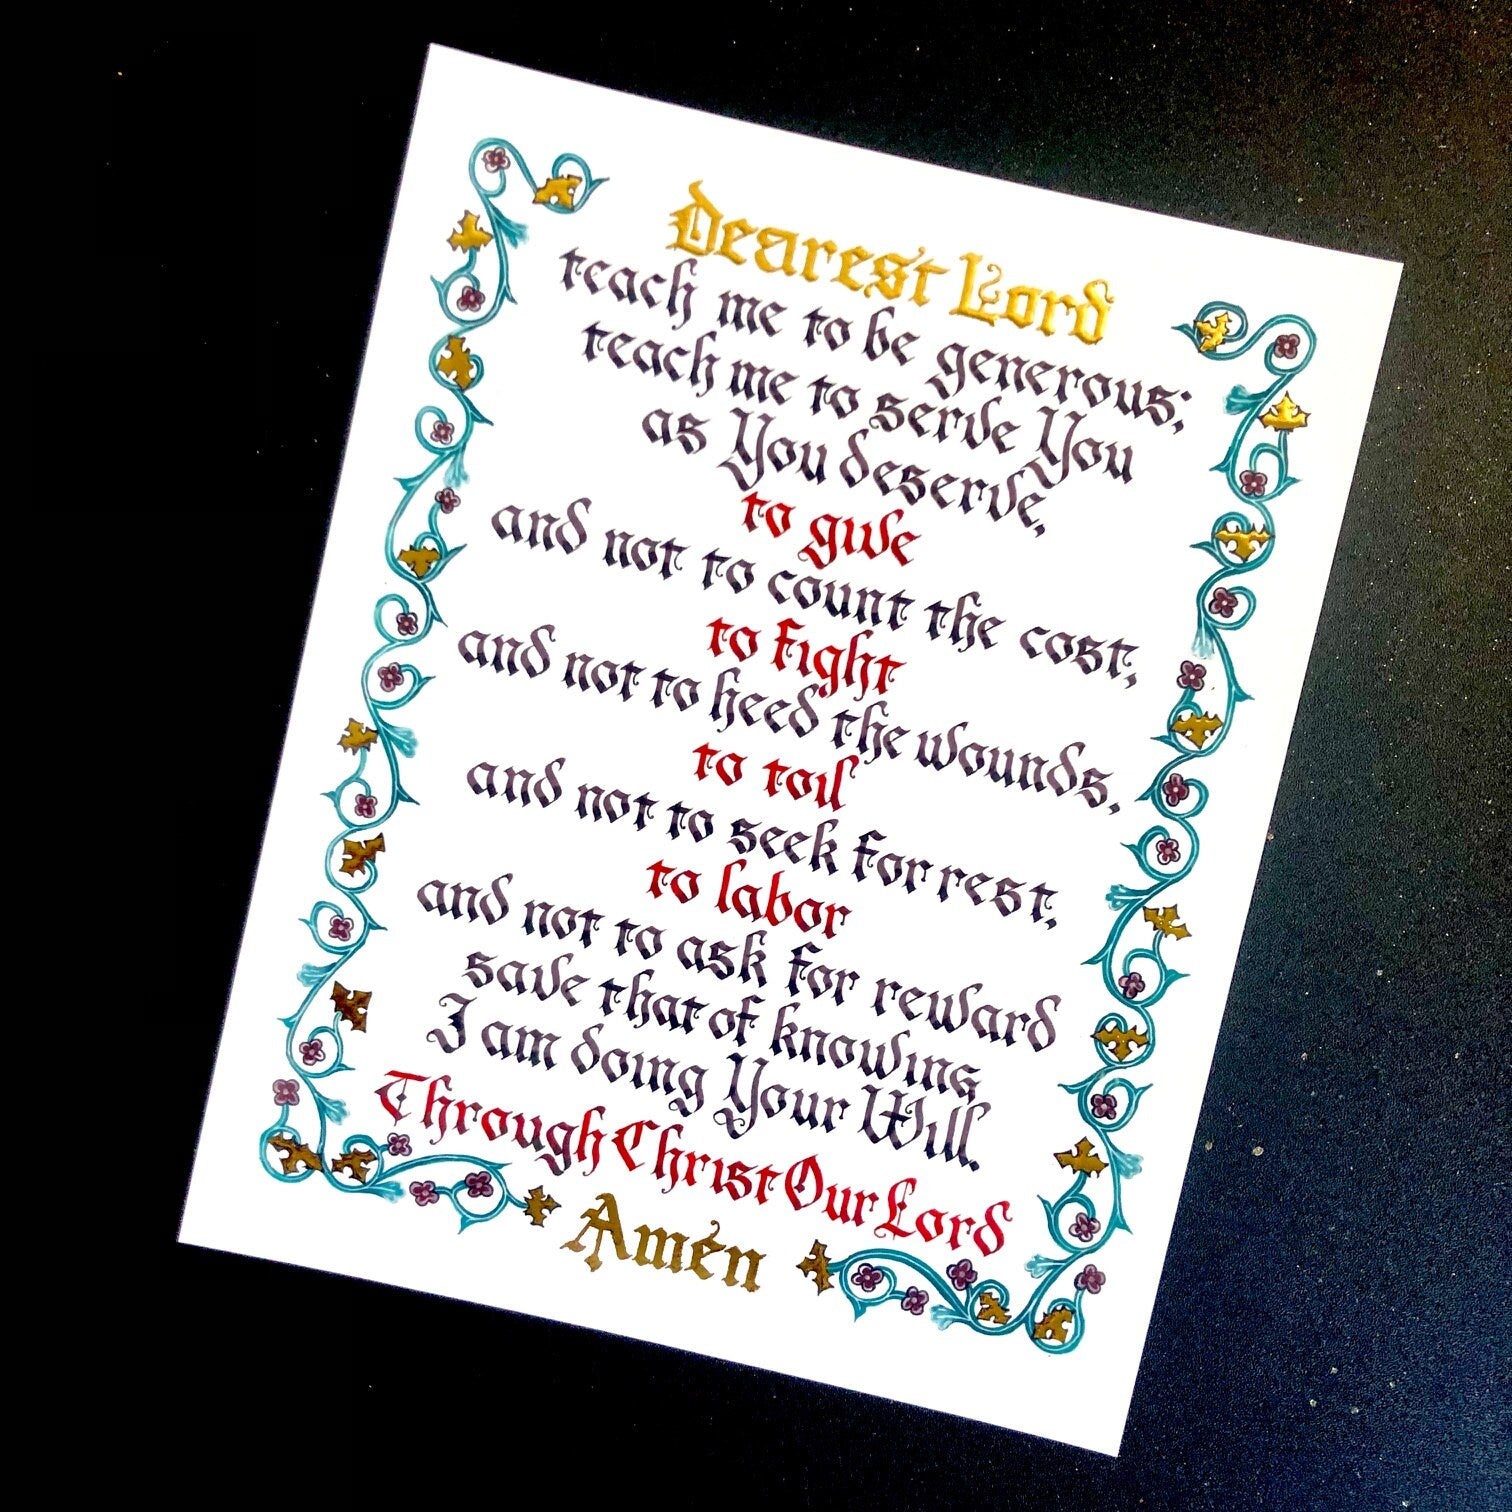 Dearest Lord
teach me to be generous;
teach me to serve You
as You deserve,
to give
and not to count the cost,
to fight
and not to heed the wounds,
to toil
and not to seek for rest,
to labor
and not to ask for reward
save that of knowing
I am doing Your Will.
Through Christ Our Lord
Amen